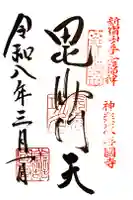 新宿山ノ手七福神
神楽坂善國寺
毘沙門天
令和八年三月